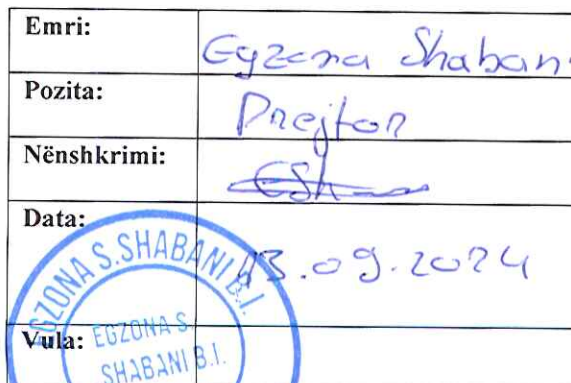 Emri:
Egzona Shabani
Pozita:
Drejtor
Nënshkrimi:
ESh
Data:
13.09.2024
Vula:
EGZONA S.SHABANI B.I.
EGZONA S.
SHABANI B.I.